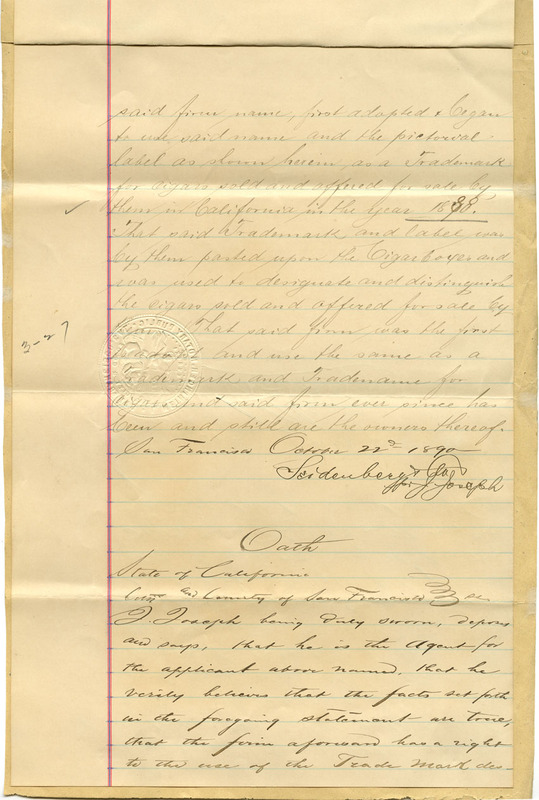 said firm name, first adopted & began
to use said name and the pictorial
label as shown herein, as a Trademark
for cigars sold and offered for sale by
them in California in the Year 1880.
That said Trademark and label was
by them pasted upon the Cigar boxes and
was used to designate and distinguish
the cigars sold and offered for sale by
That said firm was the first
3-27
to adopt and use the same as a
Trademark and Tradename for
Cigars and said firm ever since has
been and still are the owners thereof.
San Francisco October 22d 1890
Seidenberg & Co
per J. Joseph
Oath
State of California
City and County of San Francisco } ss
J. Joseph being duly sworn, deposes
and says, that he is the Agent for
the applicant above named, that he
verily believes that the facts set forth
in the foregoing statement are true,
that the firm aforesaid has a right
to the use of the Trade Mark des-